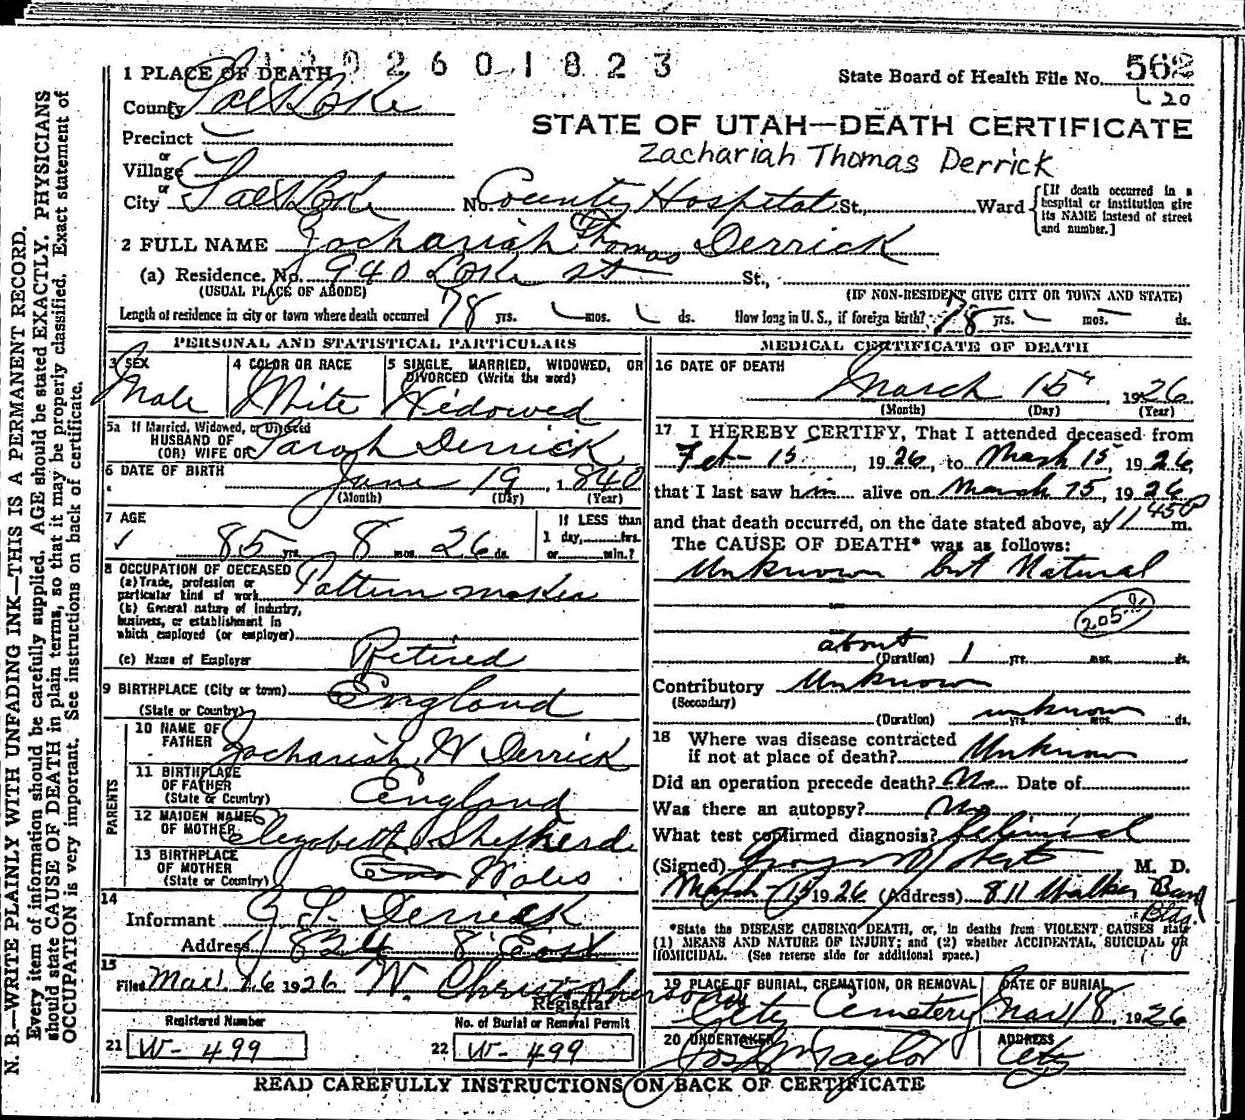 N. B.—WRITE PLAINLY WITH UNFADING INK—THIS IS A PERMANENT RECORD.
Every item of information should be carefully supplied. AGE should be stated EXACTLY. PHYSICIANS
should state CAUSE OF DEATH in plain terms, so that it may be properly classified. Exact statement of
OCCUPATION is very important. See instructions on back of certificate.
2601823
1 PLACE OF DEATH
State Board of Health File No. 562
County Salt Lake
20
STATE OF UTAH—DEATH CERTIFICATE
Precinct
or
Zachariah Thomas Derrick
Village
or
City Salt Lake No. County Hospital St., Ward
[If death occurred in a
hospital or institution give
its NAME instead of street
and number.]
2 FULL NAME Zachariah Thomas Derrick
(a) Residence. No. 940 Lake St St.,
(USUAL PLACE OF ABODE) (IF NON-RESIDENT GIVE CITY OR TOWN AND STATE)
Length of residence in city or town where death occurred 78 yrs. mos. ds. How long in U. S., if foreign birth? 78 yrs. mos. ds.
PERSONAL AND STATISTICAL PARTICULARS
3 SEX Male
4 COLOR OR RACE White
5 SINGLE, MARRIED, WIDOWED, OR
DIVORCED (Write the word)
Widowed
5a If Married, Widowed, or Divorced
HUSBAND OF
(OR) WIFE OF Sarah Derrick
6 DATE OF BIRTH June 19, 1840
(Month) (Day) (Year)
7 AGE
85 yrs. 8 mos. 26 ds.
If LESS than
1 day, hrs.
or min.?
8 OCCUPATION OF DECEASED
(a) Trade, profession or
particular kind of work Pattern maker
(b) General nature of industry,
business, or establishment in
which employed (or employer)
(c) Name of Employer Retired
9 BIRTHPLACE (City or town)
(State or Country) England
PARENTS
10 NAME OF
FATHER Zachariah W Derrick
11 BIRTHPLACE
OF FATHER
(State or Country) England
12 MAIDEN NAME
OF MOTHER Elizabeth Shepherd
13 BIRTHPLACE
OF MOTHER
(State or Country) Wales
14
Informant Derrick
Address 824 8 East
15
Filed Mar 16 1926 W. Christopherson
Registrar
Registered Number No. of Burial or Removal Permit
21 W-499 22 W-499
MEDICAL CERTIFICATE OF DEATH
16 DATE OF DEATH
March 15, 1926
(Month) (Day) (Year)
17 I HEREBY CERTIFY, That I attended deceased from
Feb-15, 1926, to March 15, 1926,
that I last saw him alive on March 15, 1926
and that death occurred, on the date stated above, at 11 45P m.
The CAUSE OF DEATH* was as follows:
Unknown but Natural
205
about
(Duration) 1 yrs. mos. ds.
Contributory Unknown
(Secondary)
(Duration) unknown yrs. mos. ds.
18 Where was disease contracted
if not at place of death? Unknown
Did an operation precede death? No Date of
Was there an autopsy? No
What test confirmed diagnosis? Clinical
(Signed) M. D.
March 15 1926 (Address) 811 Walker Bank
Bldg.
*State the DISEASE CAUSING DEATH, or, in deaths from VIOLENT CAUSES state
(1) MEANS AND NATURE OF INJURY; and (2) whether ACCIDENTAL, SUICIDAL or
HOMICIDAL. (See reverse side for additional space.)
19 PLACE OF BURIAL, CREMATION, OR REMOVAL
City Cemetery
DATE OF BURIAL
Mar 18, 1926
20 UNDERTAKER
Jos Wm Taylor
ADDRESS
City
READ CAREFULLY INSTRUCTIONS ON BACK OF CERTIFICATE